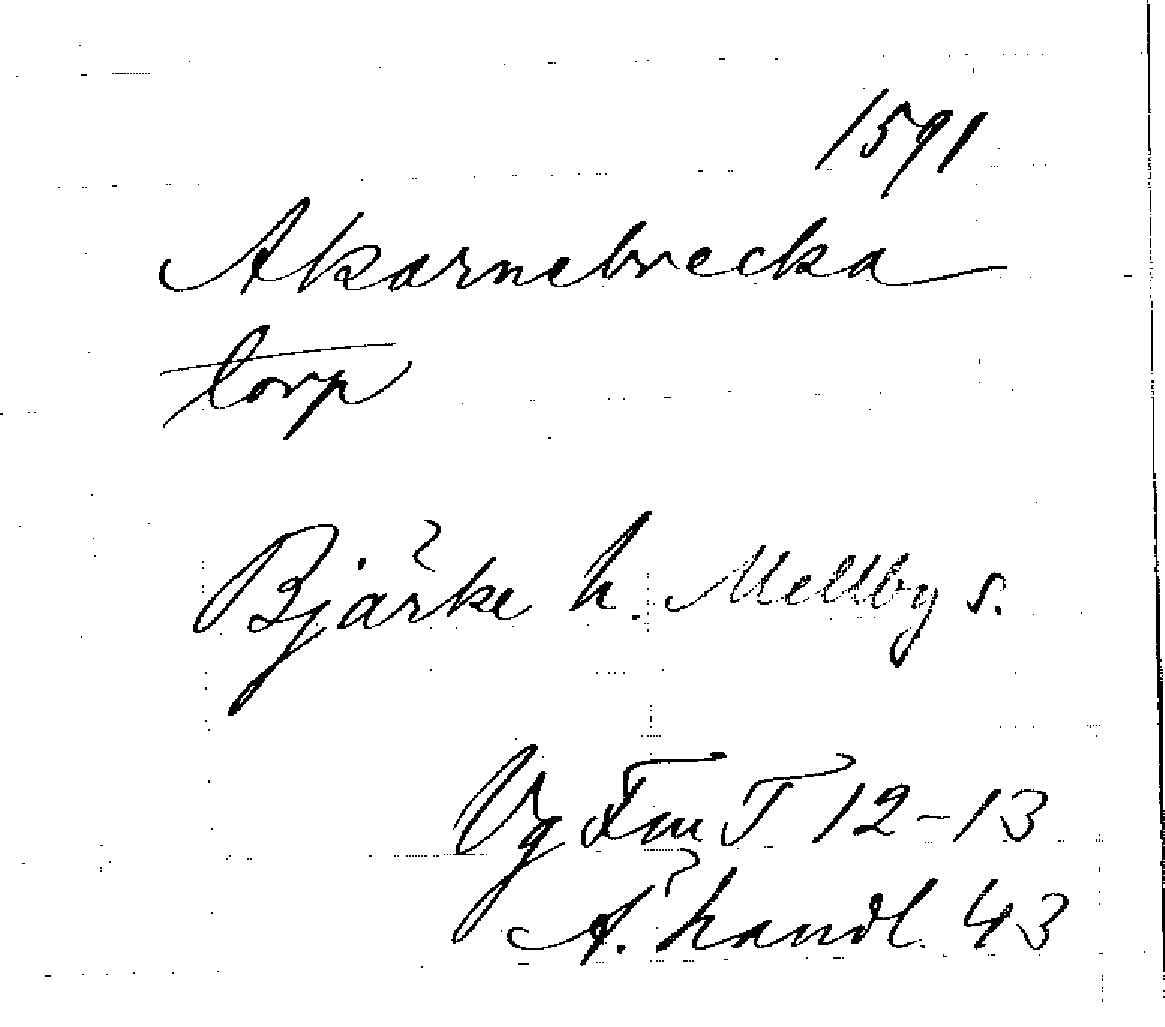 1591
Akarnebrecka
torp
Bjärke h. Mellby s.
Vg Fm T 12-13
A. handl. 43